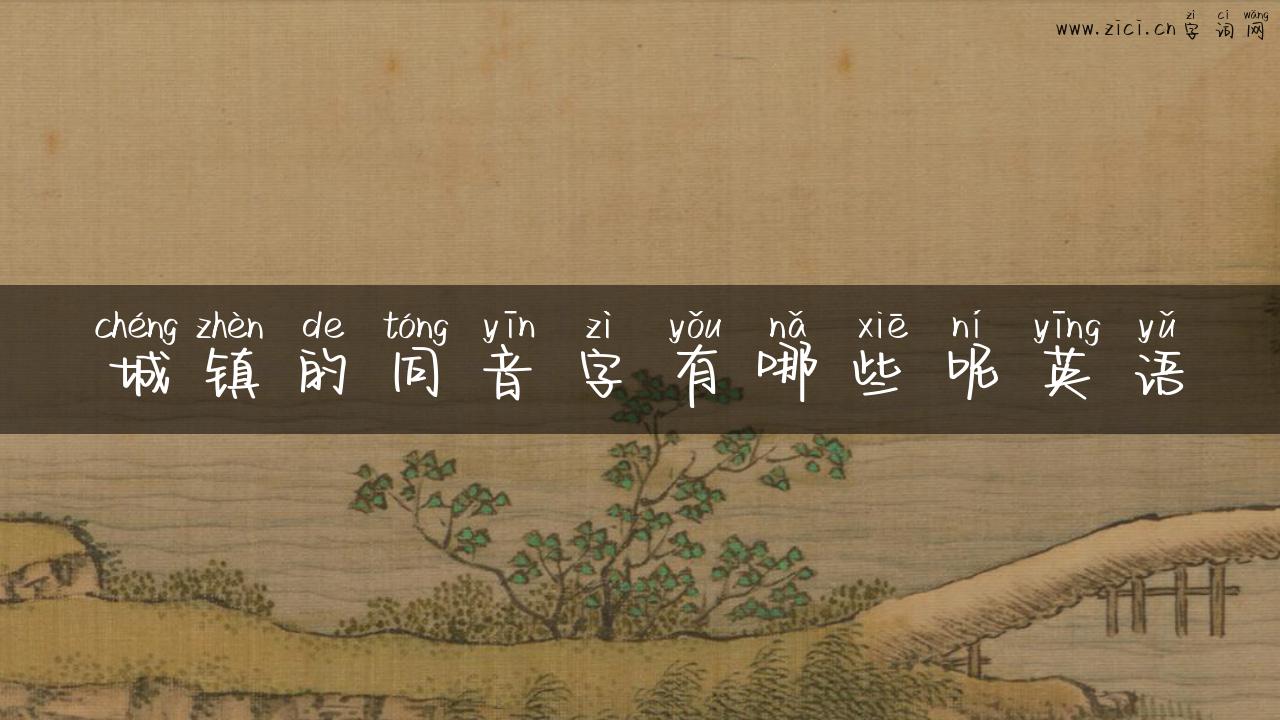 zì cí wǎng
www.zici.cn 字词网
chéng zhèn de tóng yīn zì yǒu nǎ xiē ní yīng yǔ
城镇的同音字有哪些呢英语